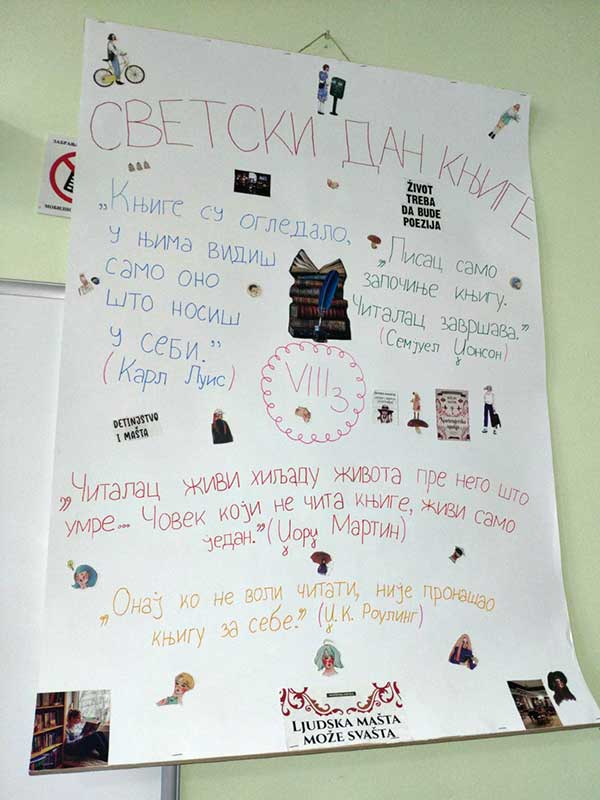 СВЕТСКИ ДАН КЊИГЕ
ЗАБРАЊ
МОБИЛН
„Књиге су огледало,
у њима видиш
само оно
што носиш
у себи.”
(Карл Луис)
ŽIVOT
TREBA
DA BUDE
POEZIJA
„Писац само
започиње књигу.
Читалац завршава.”
(Семјуел Џонсон)
VIII3
DETINJSTVO
I MAŠTA
„Читалац живи хиљаду живота пре него што
умре... Човек који не чита књиге, живи само
један.” (Џорџ Мартин)
„Онај ко не воли читати, није пронашао
књигу за себе.” (Џ.К. Роулинг)
LJUDSKA MAŠTA
MOŽE SVAŠTA